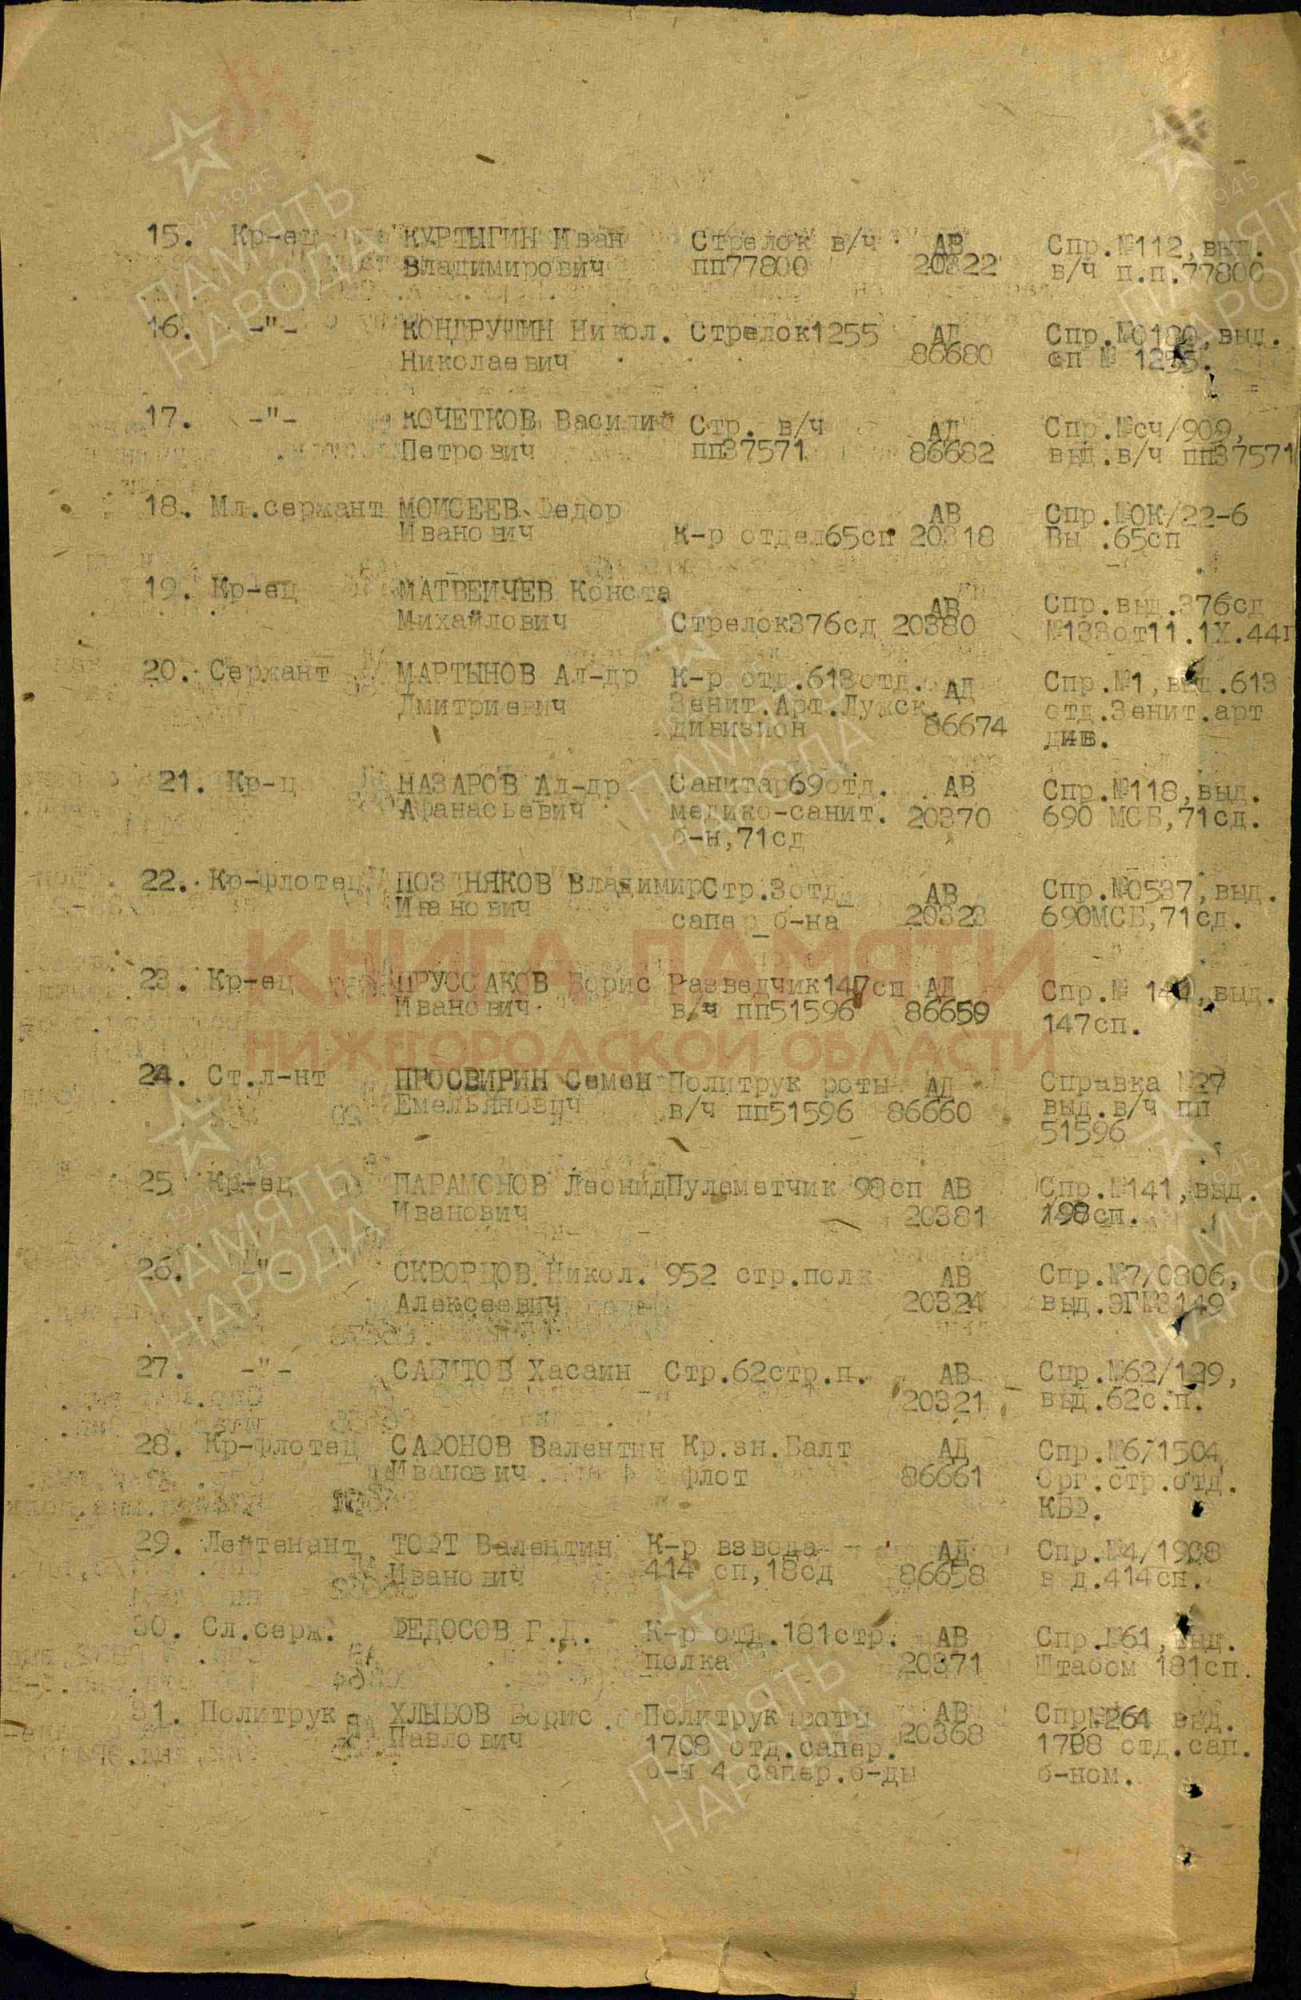 15. Кр-ец КУРТЫГИН Иван Стрелок в/ч АВ Спр.№112,выд.
Владимирович пп77800 20322 в/ч п.п.77800
16. -"- КОНДРУШИН Никол. Стрелок1255 АД Спр.№0180,выд.
Николаевич 86680 сп № 1255.
17. -"- КОЧЕТКОВ Василий Стр. в/ч АД Спр.№сч/909,
Петрович пп37571 86682 выд.в/ч пп37571
18. Мл.сержант МОИСЕЕВ Федор АВ Спр.№ОК/22-6
Иванович К-р отдел65сп 20318 Вы .65сп
19. Кр-ец МАТВЕИЧЕВ Конста АВ Спр.выд.376сд
Михайлович Стрелок376сд 20380 №133от11.1Х.44г
20. Сержант МАРТЫНОВ Ал-др К-р отд.613отд. АД Спр.№1,выд.613
Дмитриевич Зенит.Арт.Лужск. 86674 отд.Зенит.арт
дивизион див.
21. Кр-ц НАЗАРОВ Ал-др Санитар69отд. АВ Спр.№118,выд.
Афанасьевич медико-санит. 20370 690 МСБ,71сд.
б-н,71сд
22. Кр-флотец ПОЗДНЯКОВ Владимир Стр.3отд_ АВ Спр.№0537,выд.
Иванович сапер_б-на 20323 690МСБ,71сд.
23. Кр-ец ПРУССАКОВ Борис Разведчик147сп АД Спр.№ 141,выд.
Иванович в/ч пп51596 86659 147сп.
24. Ст.л-нт ПРОСВИРИН Семен Политрук роты АД Справка №27
Емельянович в/ч пп51596 86660 выд.в/ч пп
51596
25 Кр-ец ПАРАМОНОВ Леонид Пулеметчик 98сп АВ Спр.№141,выд.
Иванович 20381 198сп.
26. -"- СКВОРЦОВ Никол. 952 стр.полк АВ Спр.№7/0806,
Алексеевич 20324 выд.ЭГ№3149
27. -"- САБИТОВ Хасаин Стр.62стр.п. АВ Спр.№62/129,
20321 выд.62с.п.
28. Кр-флотец САФОНОВ Валентин Кр.зн.Балт АД Спр.№6/1504
Иванович флот 86661 Орг.стр.отд.
КБФ.
29. Лейтенант ТОРТ Валентин К-р взвода АД Спр.№4/1908
Иванович 414 сп,18сд 86658 в д.414сп.
30. Сл.серж. ФЕДОСОВ Г.Д. К-р отд.181стр. АВ Спр.№61,выд.
полка 20371 Штабом 181сп.
31. Политрук ХЛЫБОВ Борис Политрук роты АВ Спр№261 выд.
Павлович 1708 отд.сапер. 20368 1708 отд.сап.
б-н 4 сапер.б-ды б-ном.
КНИГА ПАМЯТИ
НИЖЕГОРОДСКОЙ ОБЛАСТИ
1941-1945
ПАМЯТЬ
НАРОДА